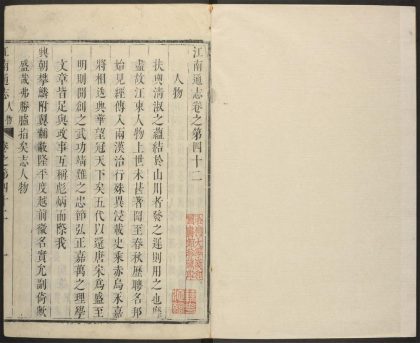 江南通志卷之第四十二
人物
扶輿清淑之蘊結於山川者發之遲則用之也
盡故江東人物上世未甚著聞至春秋歷聘名邦
始見經傳入兩漢治行殊異浸載史乘赤烏永嘉
將相迭興華望冠天下矣五代以還唐宋爲盛至
明則開創之武功靖難之忠節弘正嘉萬之理學
文章皆足與政事互稱彪炳而際我
興朝攀鱗附翼蔽隆平度越前徽名實尤副猗歟
盛哉弗勝臚指矣志人物
江南通志 人物 卷之第四十二 一